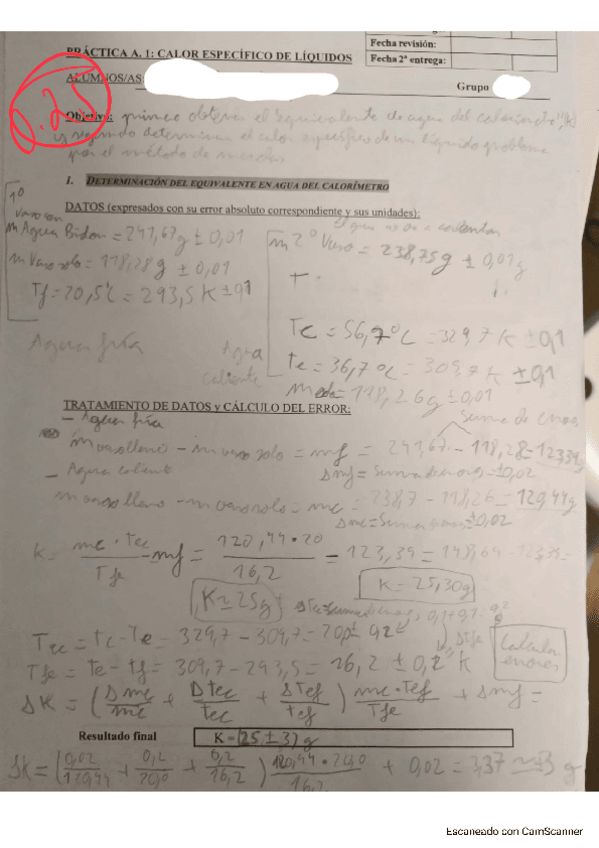 Fecha revisión:
PRÁCTICA A. 1: CALOR ESPECÍFICO DE LÍQUIDOS
Fecha 2ª entrega:
ALUMNOS/AS:
Grupo
0.25
Objetivo: primero obtener el equivalente de agua del calorímetro (k)
y segundo determinar el calor específico de un líquido problema
por el método de mezclas
I. DETERMINACIÓN DEL EQUIVALENTE EN AGUA DEL CALORÍMETRO
DATOS (expresados con su error absoluto correspondiente y sus unidades):
1º
m Agua Bidon = 241,67g ± 0,01
m 2º Vaso = 238,75g ± 0,01g
m Vaso solo = 118,28 g ± 0,01
Tf = 20,5ºC = 293,5 K ± 0,1
Tc = 56,7ºC = 329,7 K ± 0,1
Agua fría
Agua caliente
te = 36,7 ºC = 309,7 K ± 0,1
= 118,26g ± 0,01
TRATAMIENTO DE DATOS y CÁLCULO DEL ERROR:
- Agua fría
m vaso lleno - m vaso solo = mf = 241,67 - 118,28 = 123,39g
- Agua caliente
Δmf = Suma de errores = ± 0,02
m vaso lleno - m vaso solo = mc = 238,7 - 118,26 = 120,44g
± 0,02
K = mc · Tec / Tfe - mf = 120,44 · 20 / 16,2 - 123,39 = 148,69 - 123,39 =
K = 25,30g
K ≈ 25g
Tec = Tc - Te = 329,7 - 309,7 = 20,0 ± 0,2
Calcular errores
Tfe = te - tf = 309,7 - 293,5 = 16,2 ± 0,2 K
ΔK = (Δmc/mc + Δtec/tec + Δtef/tef) mc · Tef/Tfe + Δmf =
Resultado final
K = (25 ± 3) g
ΔK = (0,02/120,44 + 0,2/20,0 + 0,2/16,2) 120,44 · 20,0/16,2 + 0,02 = 3,37 ≈ 3 g
Escaneado con CamScanner